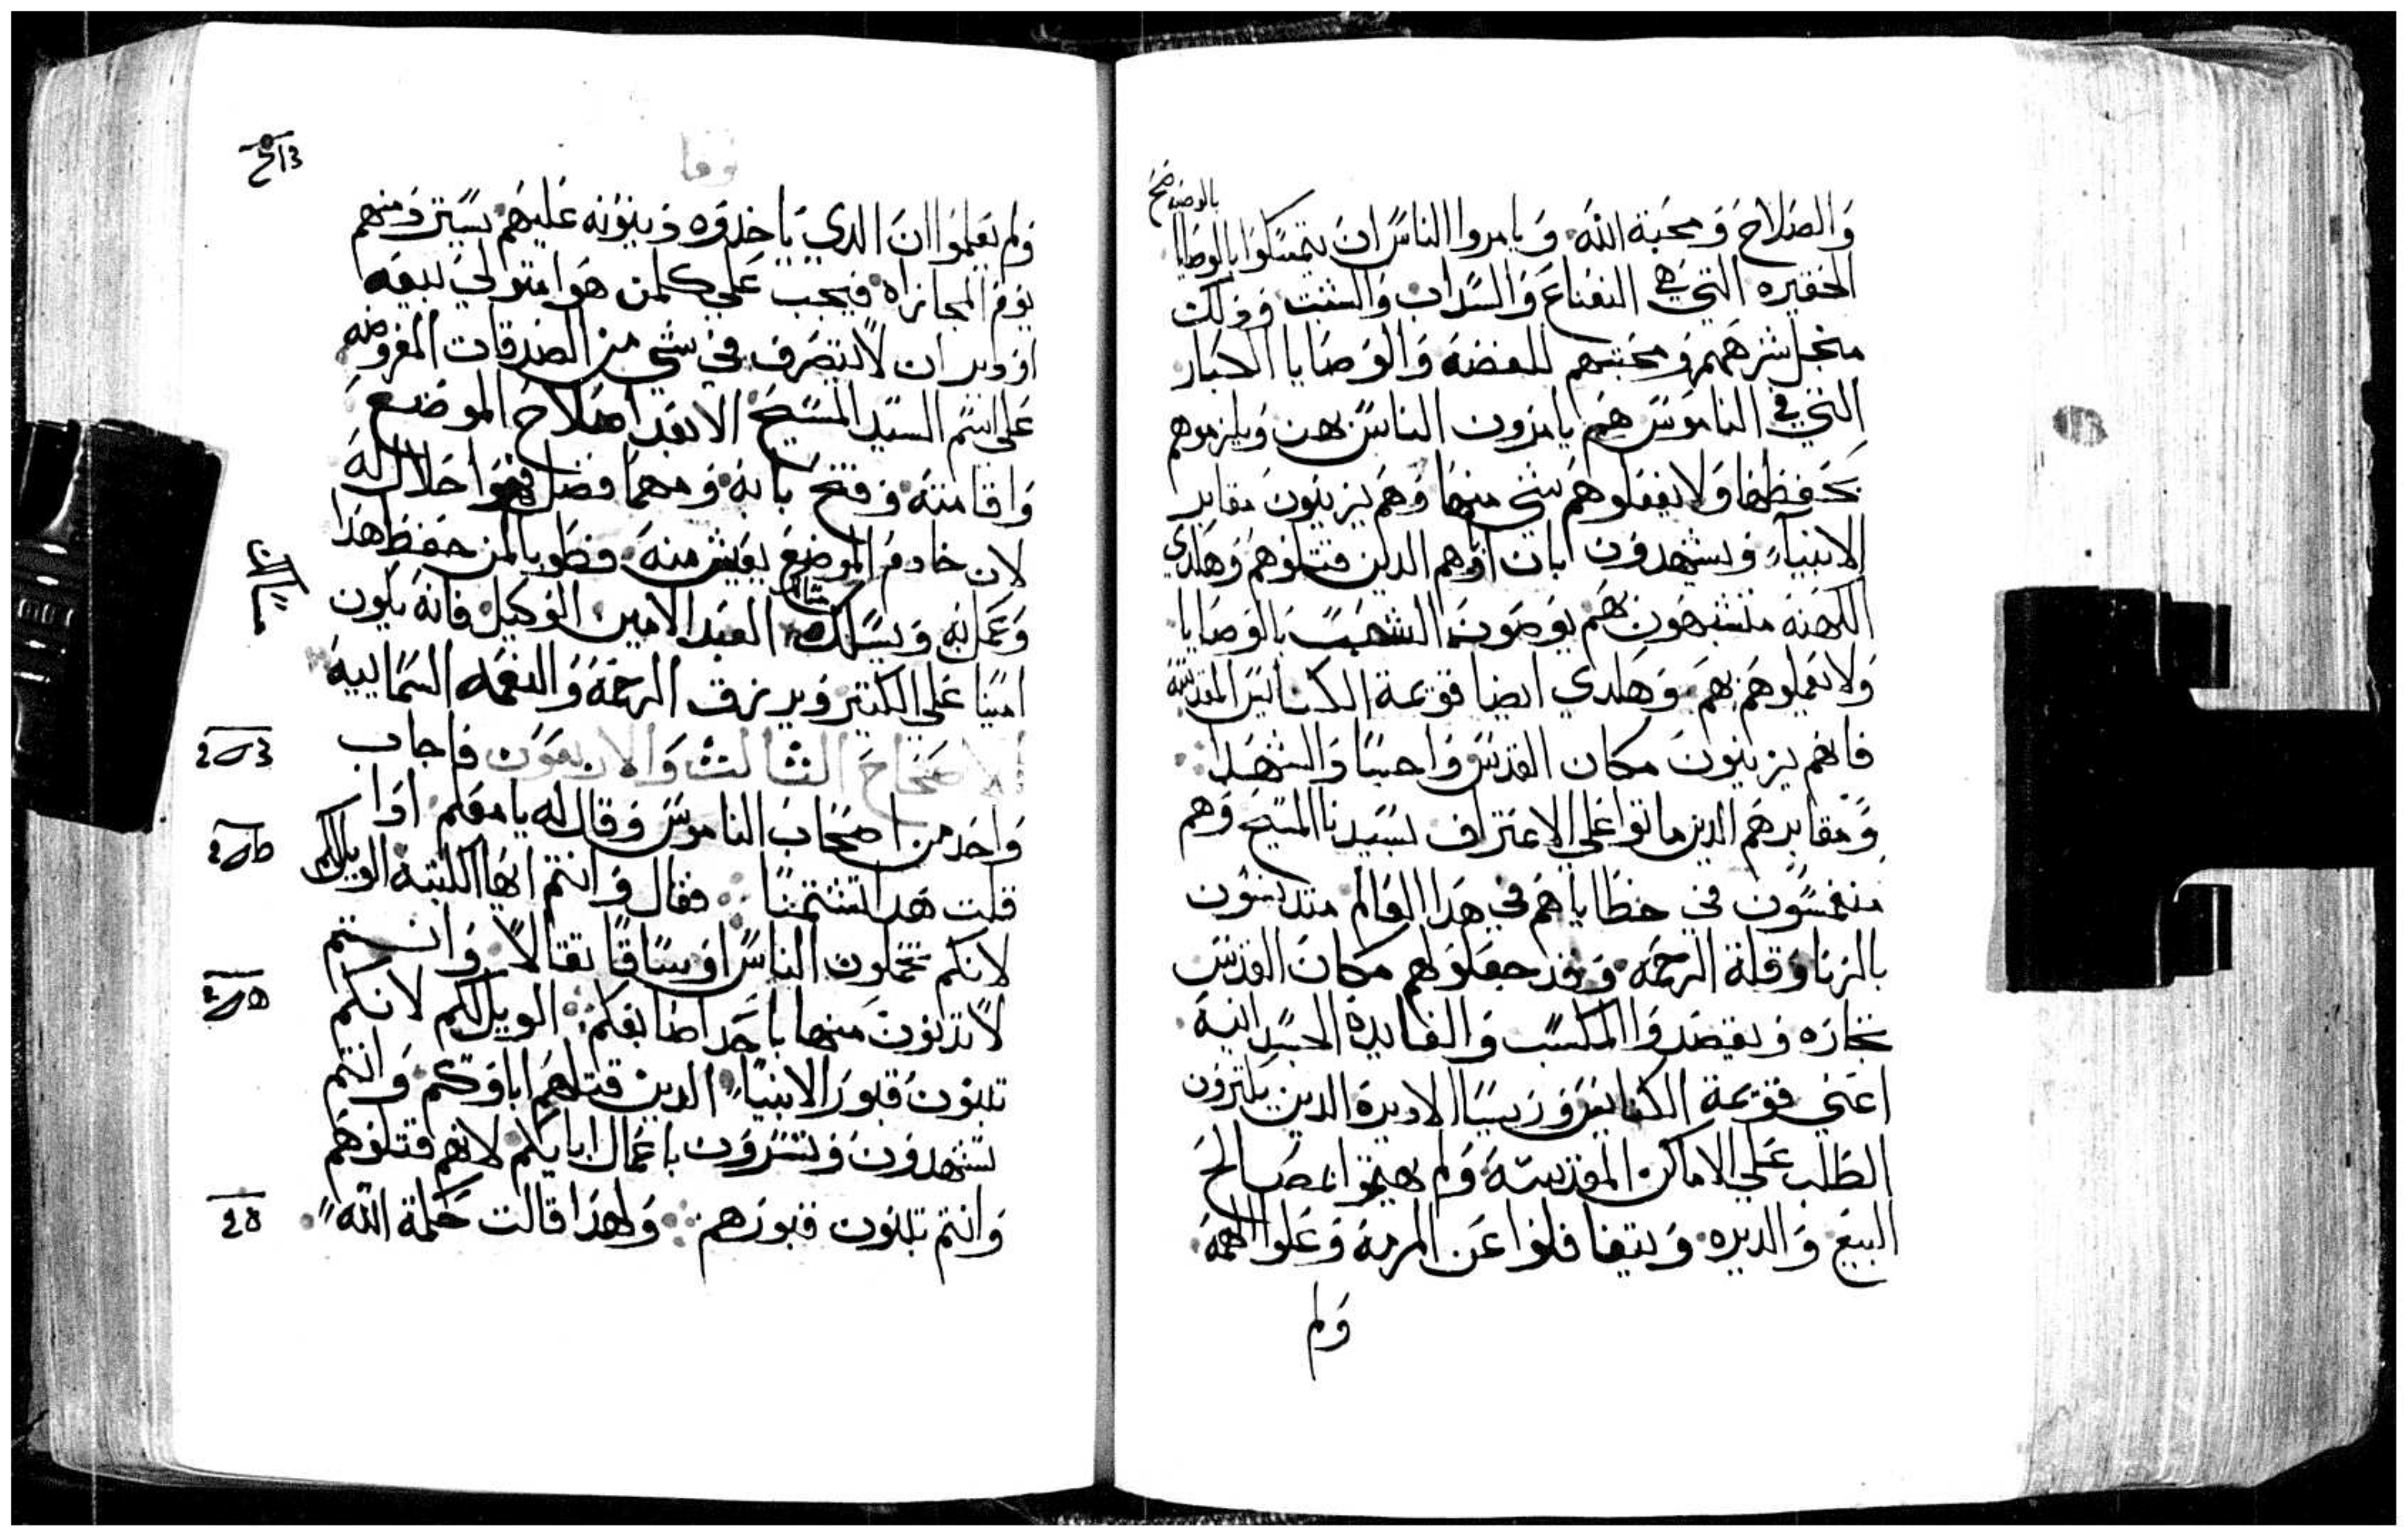 والصلاح ومحبة الله ويامروا الناس ان يتمسكوا بالوصايا
الحقيره التي هي النعناع والسداب والشبت وذلك
منجل شرههم ومحبتهم للفضه والوصايا الكبار
التي في الناموس هم يامرون الناس بهن ويلزموهم
بحفظها ولا يفعلوهم شي منها وهم يزينون مقابر
الانبياء ويشهدون بان اباوهم الدين قتلوهم وهكدي
الكهنه متشبهون بهم يوصون الشعب بالوصايا
ولا يعملوهم بهم وهكدي ايضا قومة الكنايس المقدسة
فانهم يزينون مكان القدس واجساد الشهدا
ومقابرهم الدين ماتوا علي الاعتراف بسيدنا المسيح وهم
منغمسون في خطاياهم في هدا العالم متدنسون
بالزنا وقلة الرحمه وقد جعلوا لهم مكان القدس
تجاره ويقصدوا المكسب والفايدة الجسدانية
اعني قومة الكنايس وريسا الاديرة الدين يكترون
الطلب علي الاماكن المقدسة ولم يهتموا بمصالح
البيع والديره ويتغافلوا عن المرمة وعلوا الهمة
ولم
لوقا
ولم يعلموا ان الدي ياخدوه دينونه عليهم يسير ومنهم
يوم المجازاه فيجب علي كلمن هو امتولي لبيعه
او دير ان لا يتصرف في شي من الصدقات المفروضه
علي اسم السيد المسيح الا بعد اصلاح الموضع
واقامته وفتح بابه ومهما فضل فهوا حلال له
لان خادم الموضع يعيش منه فطوبا لمن حفظ هدا
وعمل به ويسلك مثال العبد الامين الوكيل فانه يكون
امينا علي الكتير ويرزق الرحمة والنعمه السماييه
الاصحاح الثالث والاربعون فاجاب
واحد من اصحاب الناموس وقال له يا معلم ادا
قلت هدا تشتمنا فقال وانتم ايها الكتبة الويل لكم
لانكم تحملون الناس اوساقا ثقالا وانتم
لا تدنون منها باحد اصابعكم الويل لكم لانكم
تبنون قبور الانبياء الدين قتلهم اباوكم وانتم
تشهدون وتسرون باعمال ابايكم لانهم قتلوهم
وانتم تبنون قبورهم ولهذا قالت حكمة الله